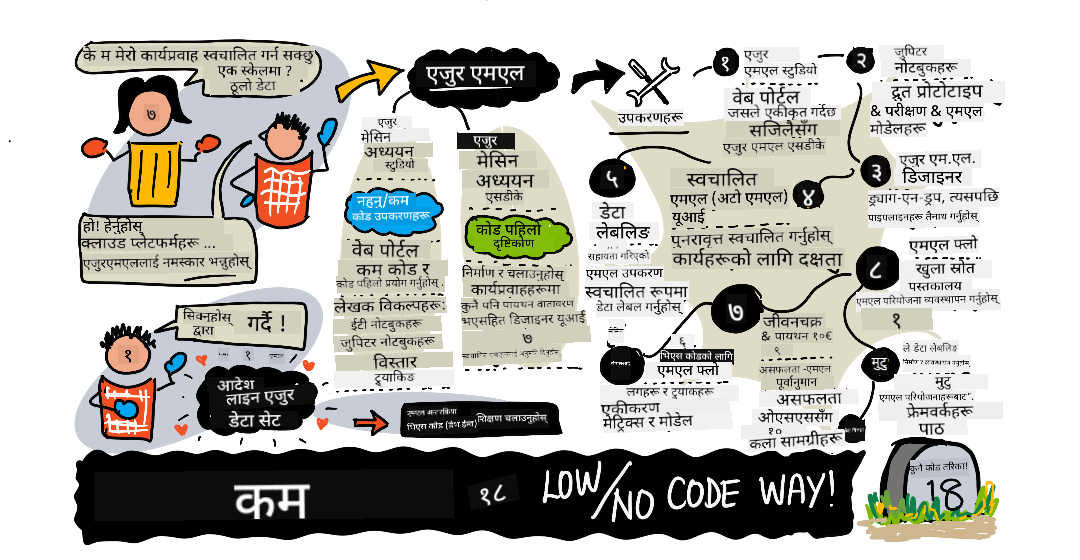 के म मेरो कार्यप्रवाह स्वचालित गर्न सक्छु
एक स्केलमा ?
ठूलो डेटा
७
हो! हेर्नुहोस्
क्लाउड प्लेटफर्महरू ...
एजुरएमएललाई नमस्कार भन्नुहोस्
सिक्नुहोस्
द्वारा
गर्दै !
१
१
आदेश
लाइन एजुर
डेटा सेट
शिक्षण चलाउनुहोस्
एजुर एमएल
एजुर
मेसिन
अध्ययन
स्टुडियो
नहन/कम
कोड उपकरणहरू
वेब पोर्टल
कम कोड र
कोड पहिलो प्रयोग गर्नुहोस् .
लेखक विकल्पहरू:
ईटी नोटबुकहरू
जुपिटर नोटबुकहरू
विस्तार
ट्र्याकिङ
एजुर
मेसिन
अध्ययन
एसडीके
कोड पहिलो
दृष्टिकोण
निर्माण र चलाउनुहोस्
कार्यप्रवाहहरूमा
कुनै पनि पायथन वातावरण
भएसहित डिजाइनर यूआई
७
उपकरणहरू
१
एजुर
एमएल स्टुडियो
वेब पोर्टल
जसले एकीकृत गर्दछ
सजिलैसँग
एजुर एमएल एसडीके
२
जुपिटर
नोटबुकहरू
द्रूत प्रोटोटाइप
& परीक्षण & एमएल
मोडेलहरू
३
एजुर एम.एल.
डिजाइनर
ड्र्याग-एन-ड्रप, त्यसपछि
पाइपलाइनहरू तैनाथ गर्नुहोस्
४
स्वचालित
एमएल (अटो एमएल)
यूआई
पुनरावृत्त स्वचालित गर्नुहोस्
कार्यहरूको लागि दक्षता
५
डेटा
लेबलिङ
सहायता गरिएको
एमएल उपकरण
स्वचालित रूपमा
डेटा लेबल गर्नुहोस्
६
भिएस कोडको लागि
एमएल फ्लो
लगहरू र ट्र्याकहरू
एकीकरण
मेट्रिक्स र मोडेल
७
जीवनचक्र
& पायथन १०€
९
असफलता -एमएल
पूर्वानुमान
असफलता
ओएसएससँग
१०
कला सामग्रीहरू
८
एमएल फ्लो
खुला स्रोत
पस्तकालय
एमएल परियोजना व्यवस्थापन गर्नुहोस्
१
मुटु
ले डेटा लेबलिङ
मुटु
एमएल परियोजनाहरूबाट".
फ्रेमवर्कहरू
पाठ
कम
१८
LOW/NO CODE WAY!
कुनै कोड तरिका!
18